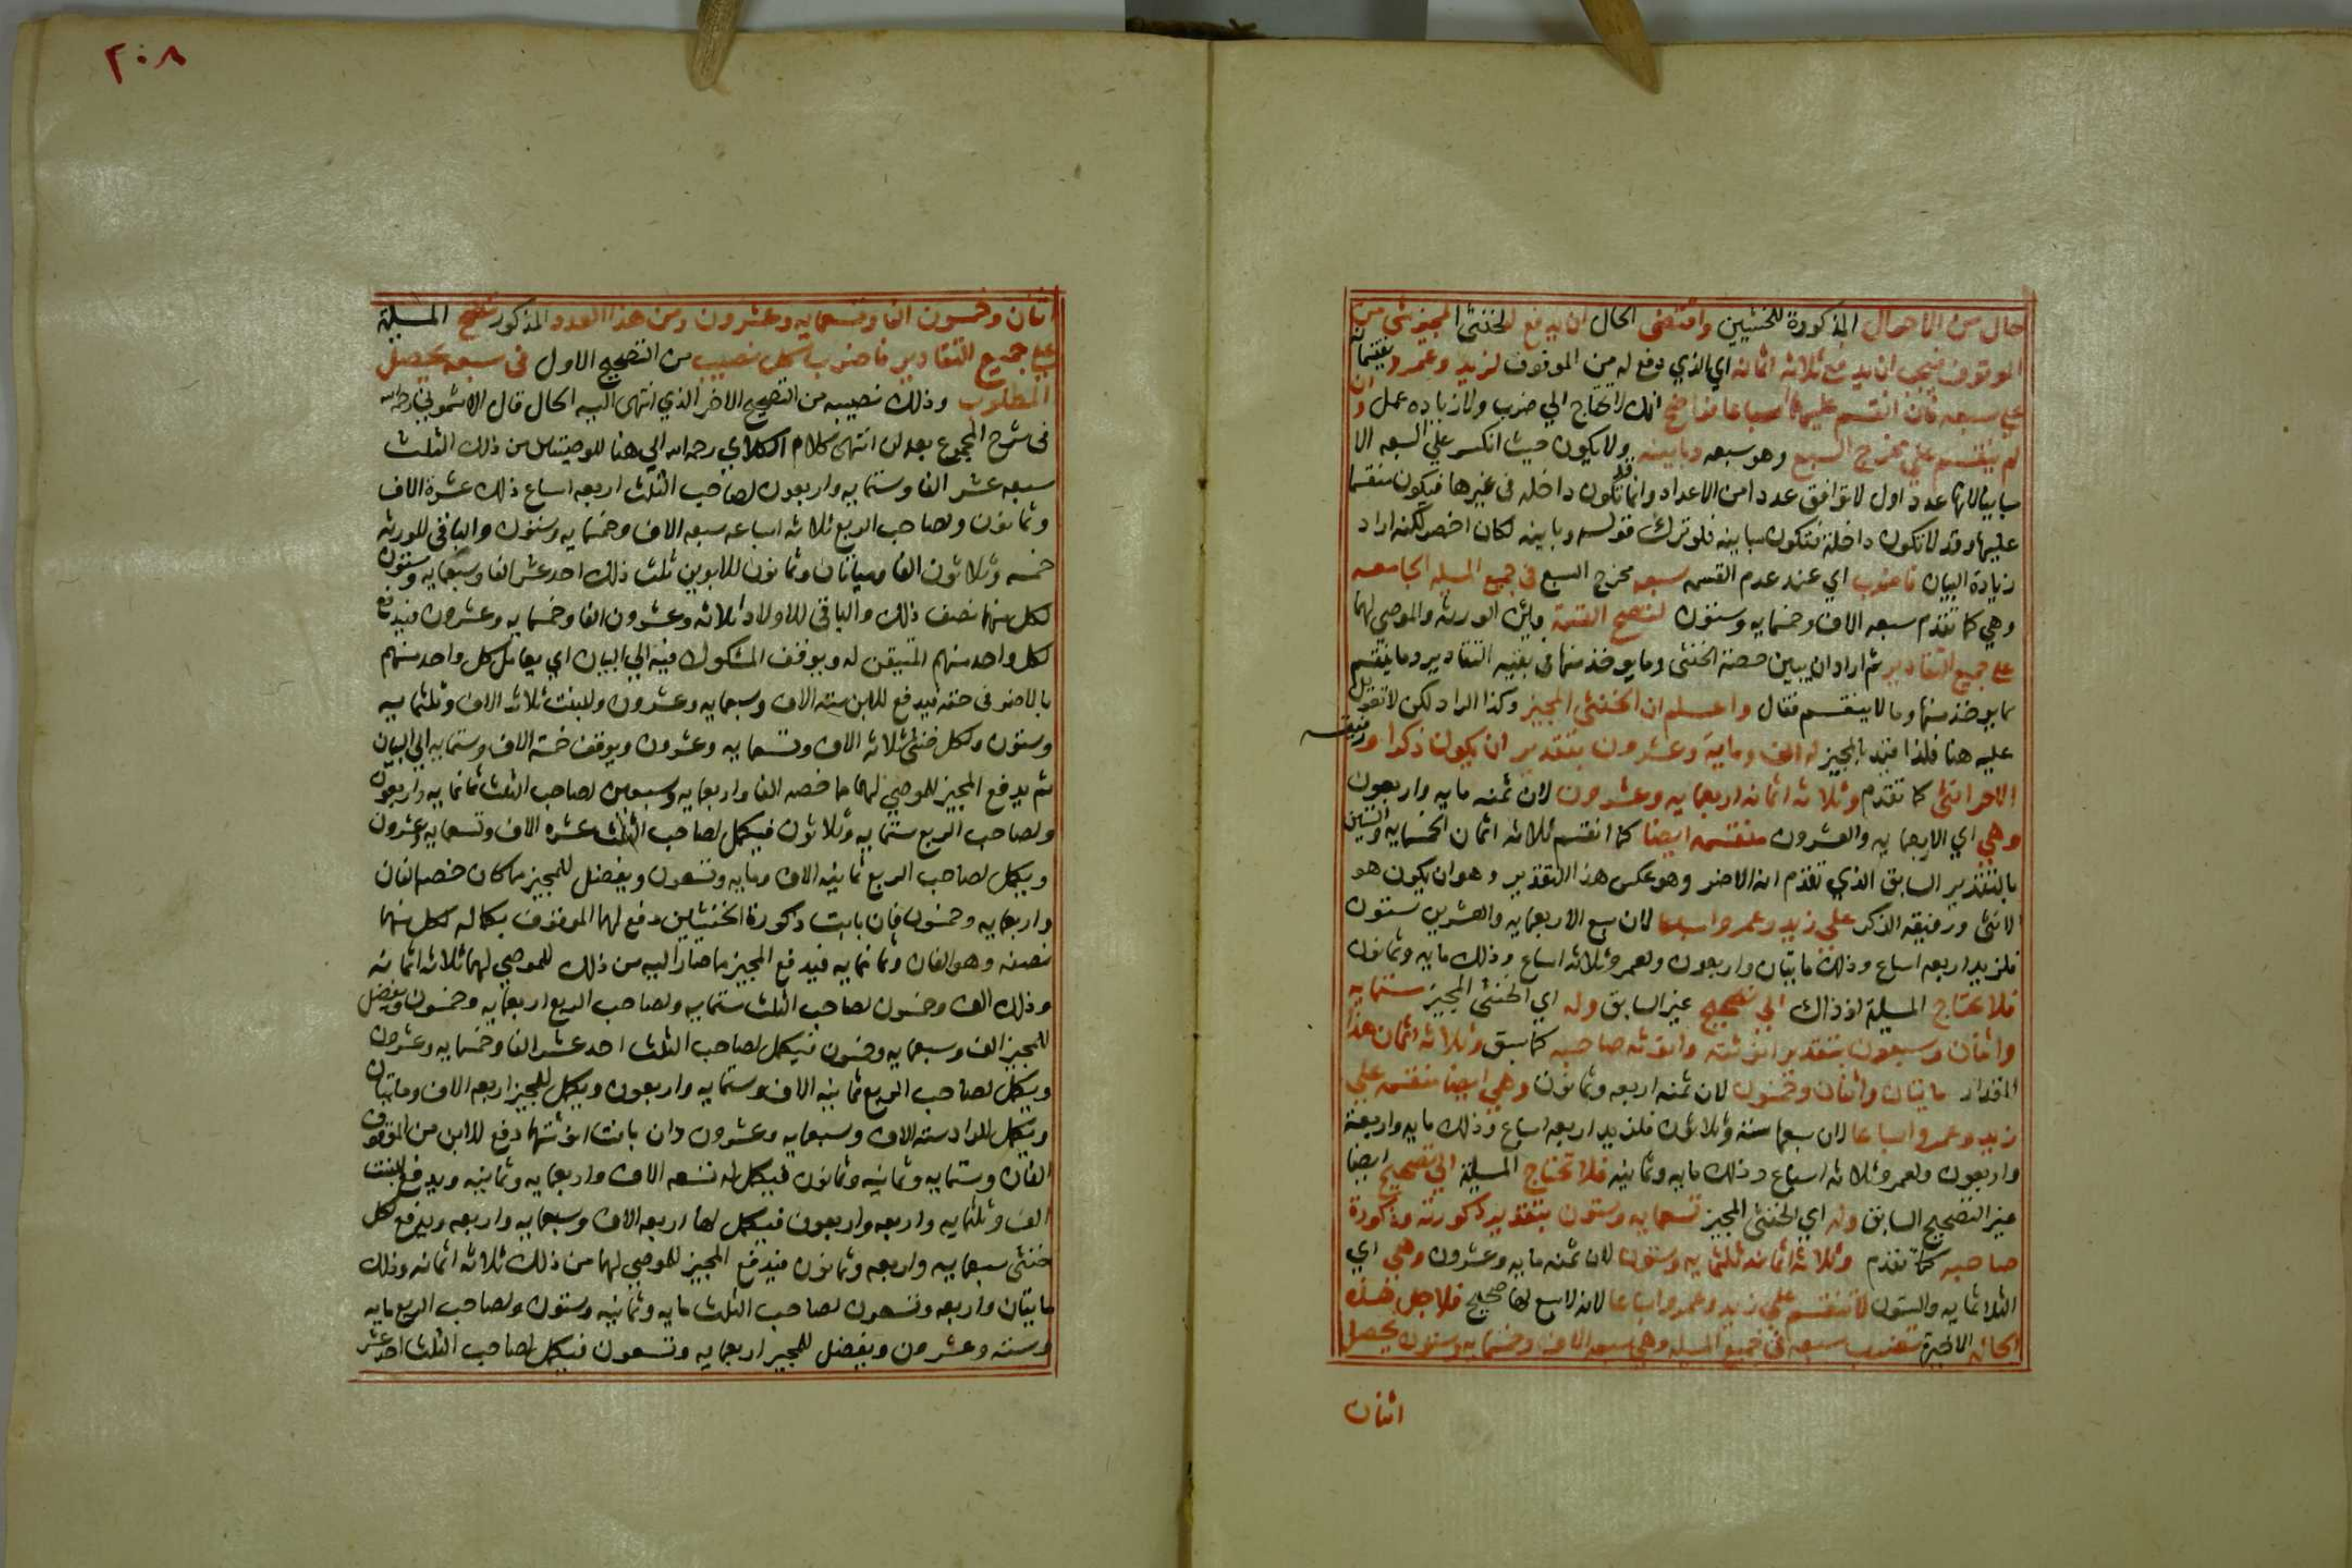 حال من الاحوال المذكورة للخنثيين واقتضى الحال ان يدفع للخنثى المجيز شي من
الموقوف فيجب ان يدفع ثلاثه اثمانه اي الذي دفع له من الموقوف لزيد وعمرو يقتسمانه
علي سبعه فان انقسم عليهما اسباعا فواضح انك لا تحتاج الي ضرب ولا زياده عمل وان
لم ينقسم علي مخرج السبع وهو سبعه وباينه ولا يكون حيث انكسر علي السبعه الا
مباينا لانها عدد اول لا توافق عددا من الاعداد وانما قد تكون داخله في غيرها فيكون منقسما
عليها وقد لا تكون داخلة فتكون مباينه فلو ترك قوله وباينه لكان اخصر لكنه اراد
زيادة البيان فاضرب اي عند عدم القسمه سبعه مخرج السبع في جميع المسيله الجامعه
وهي كما تقدم سبعه الاف وخمسمايه وستون لتصح القسمة بين الورثه والموصي لهما
علي جميع التقادير ثم اراد ان يبين حصة الخنثى وما يوخذ منها في بقيه التقادير وما ينقسم
مما يوخذ منها وما لا ينقسم فقال واعلم ان الخنثى المجيز وكذا الراد لكن لا تعويل
عليه هنا فلذا قيد بالمجيز له الف وماية وعشرون بتقدير ان يكون ذكرا ورفيقه
الاخر انثى كما تقدم وثلاثه اثمانه اربعمايه وعشرون لان ثمنه مايه واربعون
وهي اي الاربعمايه والعشرون منقسمه ايضا كما انقسم ثلاثه اثمان الخمسمايه والستين
بالتقدير السابق الذي تقدم انه الاضر وهو عكس هذا التقدير وهو ان يكون هو
الانثى ورفيقه الذكر علي زيد وعمرو اسباعا لان سبع الاربعمايه والعشرين ستون
فلزيد اربعه اسباع وذلك مايتان واربعون ولعمرو ثلاثه اسباع وذلك مايه وثمانون
فلا تحتاج المسيلة اذ ذاك الي تصحيح غير السابق وله اي الخنثى المجيز ستمايه
واثنان وسبعون بتقدير انوثته وانوثه صاحبه كما سبق وثلاثه اثمان هذا
المقدار مايتان واثنان وخمسون لان ثمنه اربعه وثمانون وهي ايضا منقسمه علي
زيد وعمرو اسباعا لان سبعها ستة وثلاثون فلزيد اربعه اسباع وذلك مايه واربعة
واربعون ولعمرو ثلاثه اسباع وذلك مايه وثمانيه فلا تحتاج المسيلة الي تصحيح ايضا
غير التصحيح السابق وله اي الخنثى المجيز تسعمايه وستون بتقدير ذكورته وذكورة
صاحبه كما تقدم وثلاثه اثمانه ثلثمايه وستون لان ثمنه مايه وعشرون وهي اي
الثلاثمايه والستون لا تنقسم علي زيد وعمرو اسباعا لانه لا سبع لها صحيح فلاجل هذه
الحاله الاخيرة تضرب سبعه في جميع المسيله وهي سبعه الاف وخمسمايه وستون يحصل
اثنان
٢٠٨
اثنان وخمسون الفا وتسعمايه وعشرون ومن هذا العدد المذكور تصح المسيلة
علي جميع التقادير فاضرب لكل نصيب من التصحيح الاول في سبعه يحصل
المطلوب وذلك نصيبه من التصحيح الاخر الذي انتهى اليه الحال قال الاشموني رحمه الله
في شرح المجموع بعد ان انتهى كلام الكلاي رحمه الله الي هنا للوصيتين من ذلك الثلث
سبعه عشر الفا وستمايه واربعون لصاحب الثلث اربعه اسباع ذلك عشرة الاف
وثمانون ولصاحب الربع ثلاثه اسباعه سبعه الاف وخمسمايه وستون والباقي للورثه
خمسه وثلاثون الفا ومياتان وثمانون للابوين ثلث ذلك احد عشر الفا وسبعمايه وستون
لكل منهما نصف ذلك والباقي للاولاد ثلاثه وعشرون الفا وخمسمايه وعشرون فيدفع
لكل واحد منهم المتيقن له ويوقف المشكوك فيه الي البيان اي يعامل كل واحد منهم
بالاضر في حقه فيدفع للابن سته الاف وسبعمايه وعشرون وللبنت ثلاثه الاف وثلثمايه
وستون ولكل خنثى ثلاثه الاف وتسعمايه وعشرون ويوقف خمسة الاف وستمايه الي البيان
ثم يدفع المجيز للموصي لهما مما خصه الفا واربعمايه وسبعين لصاحب الثلث ثمانمايه واربعون
ولصاحب الربع ستمايه وثلاثون فيكمل لصاحب الثلث عشره الاف وتسعمايه وعشرون
ويكمل لصاحب الربع ثمانيه الاف ومايه وتسعون ويفضل للمجيز مما كان خصه الفان
واربعمايه وخمسون فان بانت ذكورة الخنثيين دفع لهما الموقوف بكماله لكل منهما
نصفه وهو الفان وثمانمايه فيدفع المجيز مما صار اليه من ذلك للموصي لهما ثلاثه اثمانه
وذلك الف وخمسون لصاحب الثلث ستمايه ولصاحب الربع اربعمايه وخمسون ويفضل
للمجيز الف وسبعمايه وخمسون فيكمل لصاحب الثلث احد عشر الفا وخمسمايه وعشرون
ويكمل لصاحب الربع ثمانيه الاف وستمايه واربعون ويكمل للمجيز اربعه الاف ومايتان
ويكمل للراد سته الاف وسبعمايه وعشرون وان بانت انوثتهما دفع للابن من الموقوف
الفان وستمايه وثمانيه وثمانون فيكمل له تسعه الاف واربعمايه وثمانيه ويدفع للبنت
الف وثلثمايه واربعه واربعون فيكمل لها اربعه الاف وسبعمايه واربعه ويدفع لكل
خنثى سبعمايه واربعه وثمانون فيدفع المجيز للموصي لهما من ذلك ثلاثه اثمانه وذلك
مايتان واربعه وتسعون لصاحب الثلث مايه وثمانيه وستون ولصاحب الربع مايه
وسته وعشرون ويفضل للمجيز اربعمايه وتسعون فيكمل لصاحب الثلث احد عشر